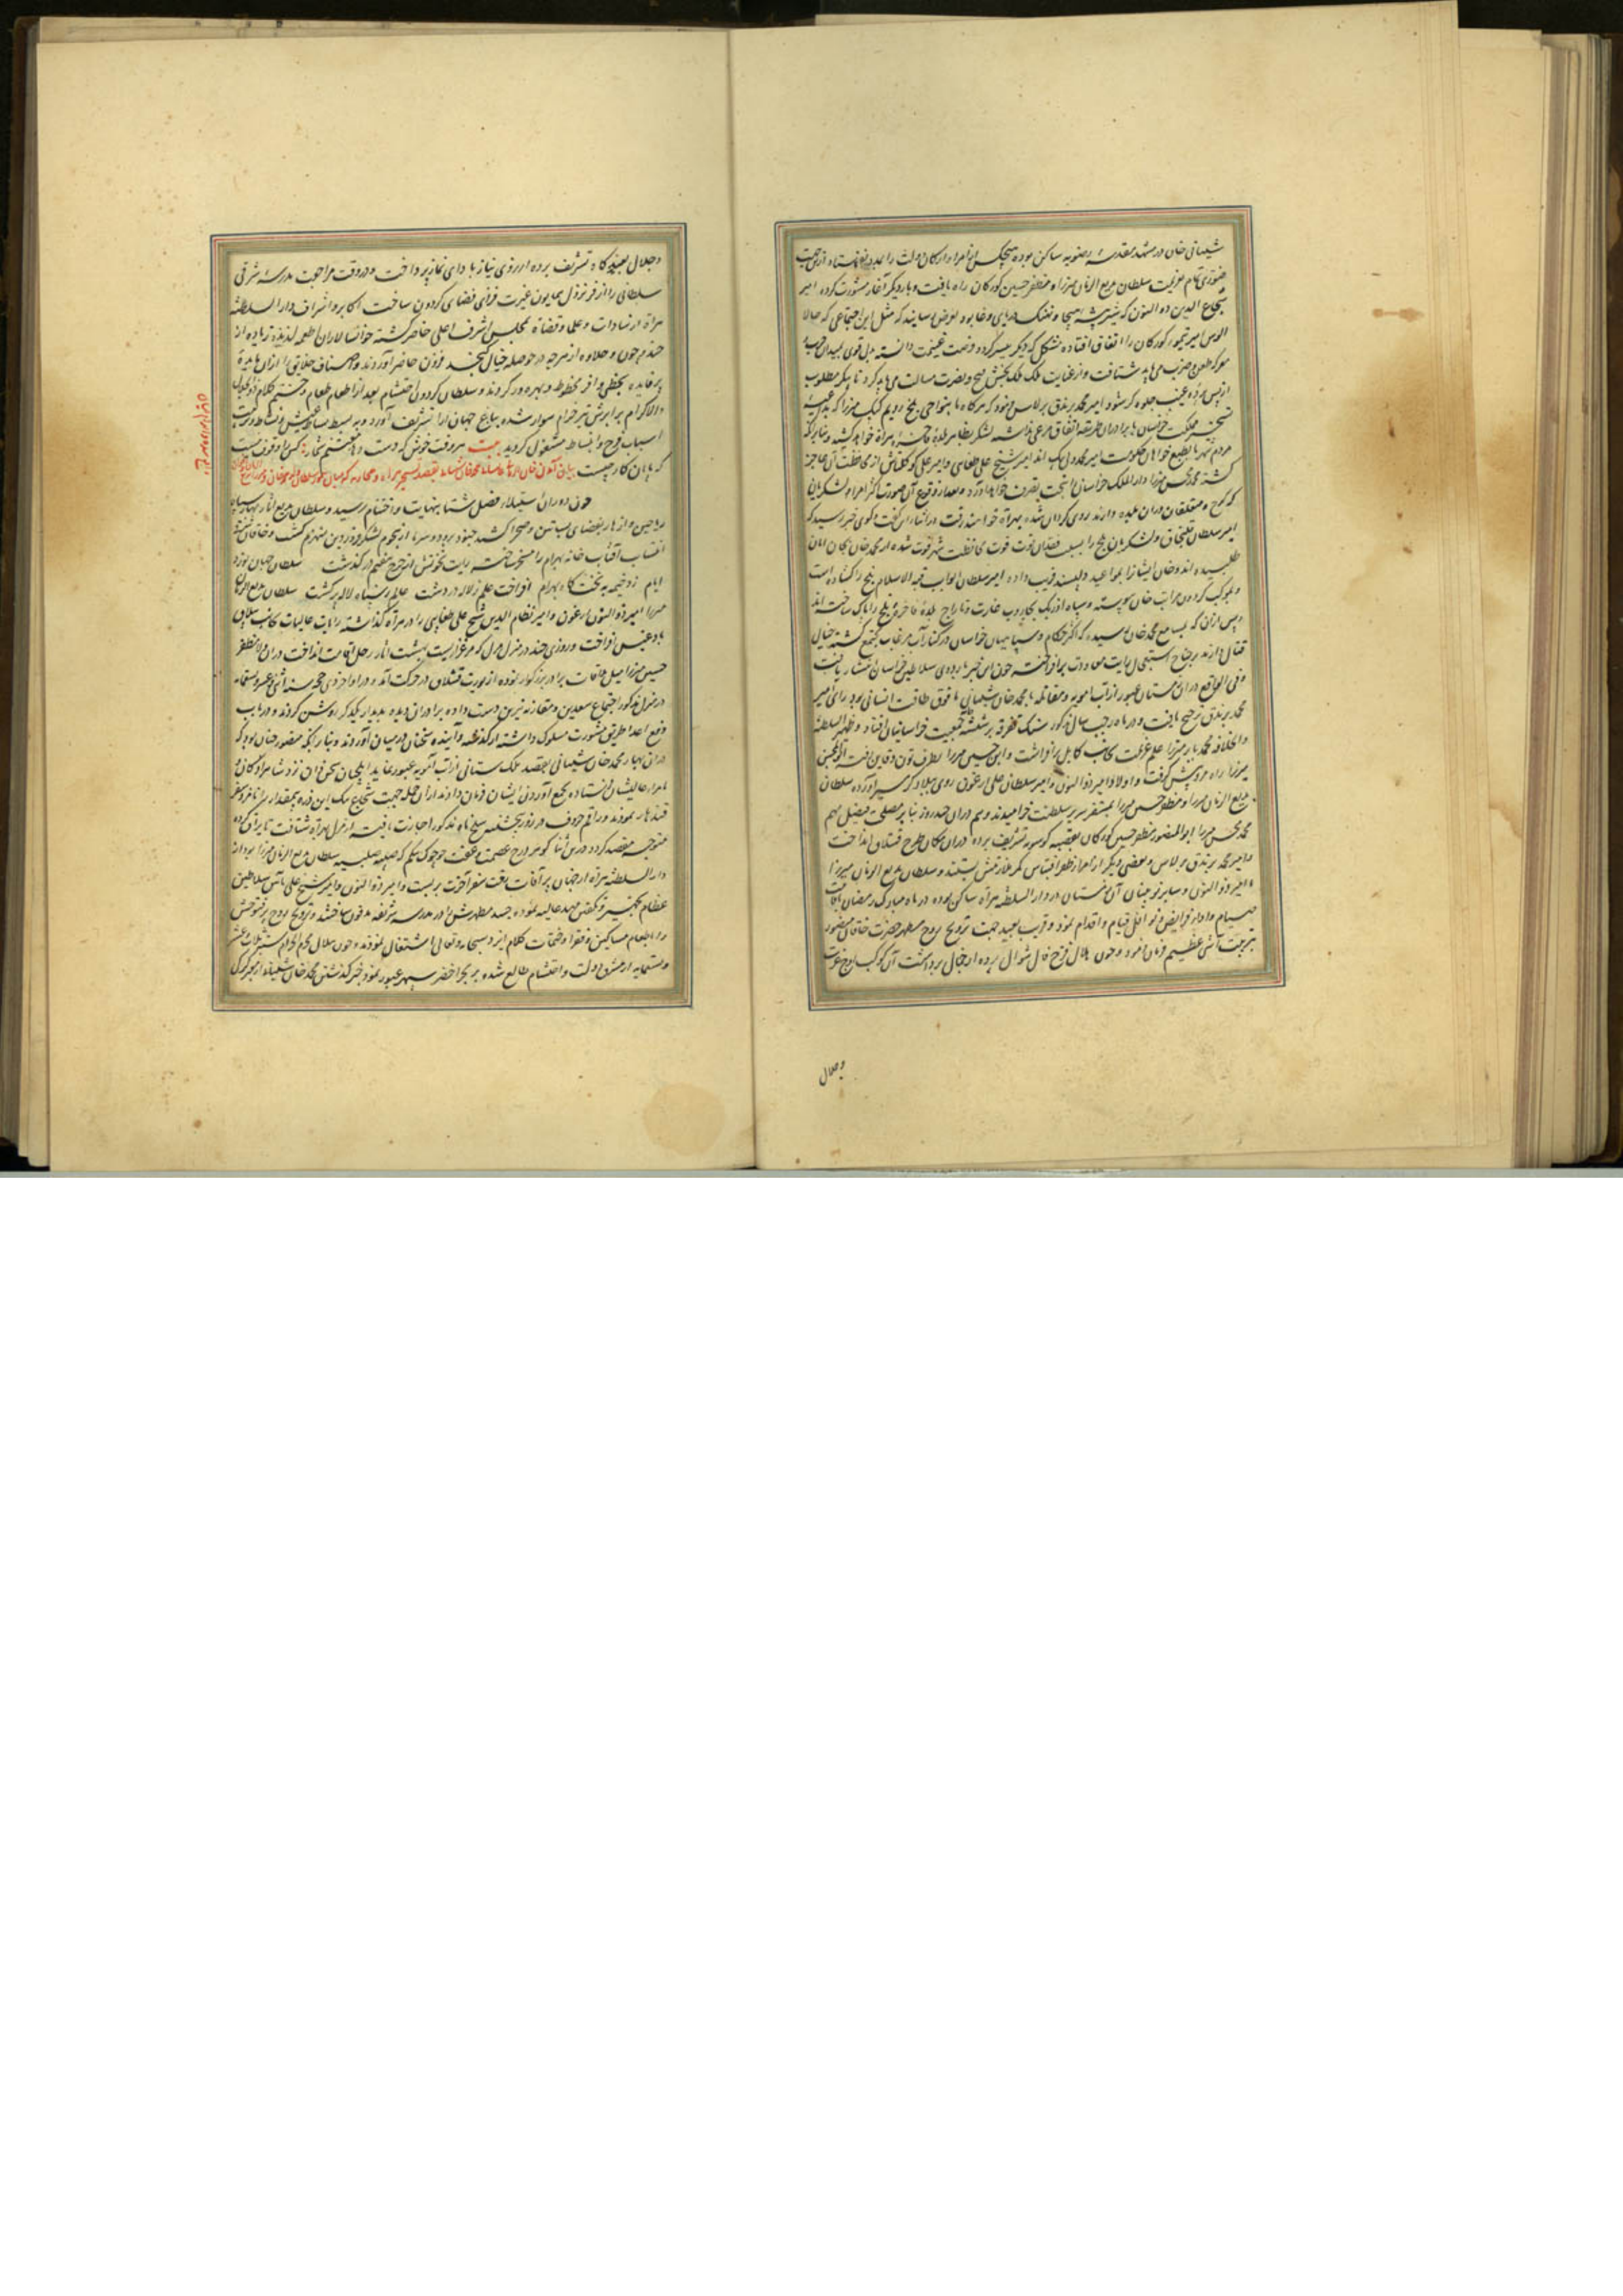 شیبانی خان در مشهد مقدسه رضویه ساکن بوده هیچکس از امرا و ارکان دولت را بمدد نفرستاد ازین جهت
فتوری تمام بعزیمت سلطان بدیع الزمان میرزا و مظفر حسین کورکان راه یافت و بار دیگر آغاز مشورت کرده امیر
شجاع الدین ذو النون که شیر بیشه هیجا و نهنک دریای وغا بود بعرض رسانید که مثل این اجتماعی که حالا
الوس امیر تیمور کورکان را اتفاق افتاده مشکل که دیگر میسر کردد فرصت غنیمت دانسته بدل قوی بمیدان
معرکه طعن و ضرب می باید شتافت و از عنایت ملک ملک بخش فتح و نصرت مسالت می باید کرد تا پیکر مطلوب
از پس پرده غیب جلوه کر شود امیر محمد برندق برلاس فرمود که هرگاه ما بنواحی بلخ رویم کپک میرزا که
تسخیر مملکت خراسان با برادران طریقه اتفاق مرعی نداشته لشکر بظاهر بلده فاخره هراة خواهد کشید و بنابر آنکه
مردم شهر بالطبع خواهان حکومت امیر محمد ولی بیک اند امیر شیخ علی طغای و امیر علی کوکلتاش از محافظت آن عاجز
کشته محمد محسن میرزا دار الملک خراسان را بتحت تصرف خواهد آورد و بعد از وقوع آن صورت اکثر امرا و لشکریان
که کوچ و متعلقان دران بلده دارند روی کردان شده بهراة خواهند رفت در اثنای این گفت و کوی خبر رسید که
امیر سلطان قلنجاق و لشکریان بلخ را بسبب فقدان قوت قوت محافظت شهر فوت شده از محمد خان بجان امان
طلبیده اند و خان ایشانرا بمواعید دلپسند فریب داده امیر سلطان ابواب قبة الاسلام بلخ را کشاده است
و بموکب کردون مراتب خان پیوسته و سپاه اوزبک بجاروب غارت و تاراج بلده فاخره بلخ را پاک ساخته اند
و پس ازان که بمسامع محمد خان رسیده که اکثر حکام و سپاهیان خراسان در کنار آب مرغاب مجتمع کشته خیال
قتال دارند بر جناح استعجال رایت معاودت برافراخته چون این خبر باردوی سلاطین خراسان انتشار یافت
و فی الواقع دران زمستان عبور از آب امویه و مقاتله با محمد خان شیبانی ما فوق طاقت انسانی بود رای امیر
محمد برندق ترجیح یافت و در ماه رجب سال مذکور سنک تفرقه بر شیشه جمعیت خراسانیان افتاد و ظهیر السلطنه
و الخلافه محمد بابر میرزا علم عزیمت بجانب کابل برافراشت و ابن حسین میرزا بطرف تون و قاین رفت ابو المحسن
میرزا راه مرو پیش گرفت و اولاد امیر ذو النون و امیر سلطان علی ارغون روی ببلاد کرمسیر آورده سلطان
بدیع الزمان میرزا و مظفر حسین میرزا بمستقر سریر سلطنت خرامیدند و هم دران چند روز بنا بر مصلحت فیصل مهم
محمد محسن میرزا ابو المنصور مظفر حسین کورکان بقصبه کوسویه تشریف برده دران مکان طرح قشلاق انداخت
و امیر محمد برندق برلاس و بعضی دیگر از امرا از ظفر اقتباس کمر ملازمتش بستند و سلطان بدیع الزمان میرزا
و امیر ذو النون و سایر نوئینان آن زمستان در دار السلطنه هراة ساکن بوده در ماه مبارک رمضان
صیام و ادای فرایض و نوافل قیام و اقدام نمود و قریب بعید جهت ترویح روح مطهر حضرت خاقان منصور
بترتیب آشی عظیم فرمان فرمود و چون هلال فرخ فال شوال پرده از جمال برداشت آن کوکب اوج عزت
وجلال
و جلال بعیدگاه تشریف برده از روی نیاز بادای نماز پرداخت و در وقت مراجعت مدرسه شرقی
سلطانی را از فر نزول همایون غیرت فزای فضای گردون ساخت اکابر و اشراف دار السلطنه
هراة از سادات و علما و قضاة بمجلس اشرف اعلی حاضر کشته خوانسالاران اطعمه لذیذه زیاده از
چند و چون و حلاوه از هر چه در حوصله خیال گنجد فزون حاضر آوردند و اصناف خلایق را ازان مایده
پر فایده بحظی وافر محظوظ و بهره ور کردند و سلطان کردون احتشام بعد از اطعام طعام و ختم کلام ذو الجلال
والاکرام بر ابرش تیز خرام سوار شده بباغ جهان آرا تشریف آورد و به بسط بساط عیش و نشاط و ترتیب
اسباب فرح و انبساط مشغول کردید بیت هر وقت خوش که دست دهد مغتنم شمار کس را وقوف نیست
که پایان کار چیست بیان آمدن
چون دوران استیلاء فصل شتا بنهایت و اختتام رسید و سلطان بدیع آثار بهار سپاه
ریاحین و ازهار بفضای بساتین و صحرا کشید جنود برد و سرما از هجوم لشکر فروردین منهزم کشت و خاقان
انتساب آفتاب خانه بهرام را مسخر ساخته رایت نخوتش از چرخ هفتم درگذشت سلطان جهان نورد
ایام زد خیمه به تختگاه بهرام افراخت علم ز لاله در دشت عالم ز سپاه لاله پر گشت سلطان بدیع الزمان
میرزا امیر ذو النون ارغون و امیر نظام الدین شیخ علی طغایی را در هراة گذاشته رایات عالیات بجانب ییلاق
بادغیس افراخت و روزی چند در منزل مرل که مرغزاریست بهشت آثار رحل اقامت انداخت دران ولا مظفر
حسین میرزا میل ملاقات برادر بزرگوار نموده از یورت قشلاق در حرکت آمد و در اواخر ذی حجه سنه اثنی عشر و تسعمائه
در منزل مذکور اجتماع سعدین و مقارنه نیرین دست داده برادران دیده بدیدار یکدیگر روشن کردند و در باب
دفع اعدا طریق مشورت مسلوک داشته از گذشته و آینده سخنان در میان آوردند و بنا بر آنکه متصور چنان بود که
دران بهار محمد خان شیبانی بقصد ملک ستانی از آب آمویه عبور نماید ایلچیان سخن دان نزد شاهزادگان و
امراء عالیشان فرستاده بجمع آوردن ایشان فرمان دادند ازان جمله جهت شجاع بیک این ذره بیمقدار را نامزد سفر
قندهار نمودند و راقم حروف در روز پنجشنبه سلخ ماه مذکور اجازت یافته از مرل بهراة شتافت تا یراق کرده
متوجه مقصد کردد درین اثنا گوهر درج عصمت و عفت چوچوک بیکم که صلبیه سلطان بدیع الزمان میرزا بود از
دار السلطنه هراة از جهان پر آفات رخت سفر آخرت بربست و امیر ذو النون و امیر شیخ علی بآئین سلاطین
عظام بتجهیز و تکفین مهد عالیه نموده جسد مطهرش را در مدرسه شریفه مدفون ساختند و ترویح روح پر فتوحش
را باطعام مساکین و فقرا و ختمات کلام ایزد سبحانه و تعالی اشتغال نمودند و چون هلال محرم الحرام سنه ثلاث عشر
و تسعمایه از مشرق دولت و احتشام طالع شده بر بحر اخضر سپهر عبور نمود خبر گذشتن محمد خان شیبانی از بحر